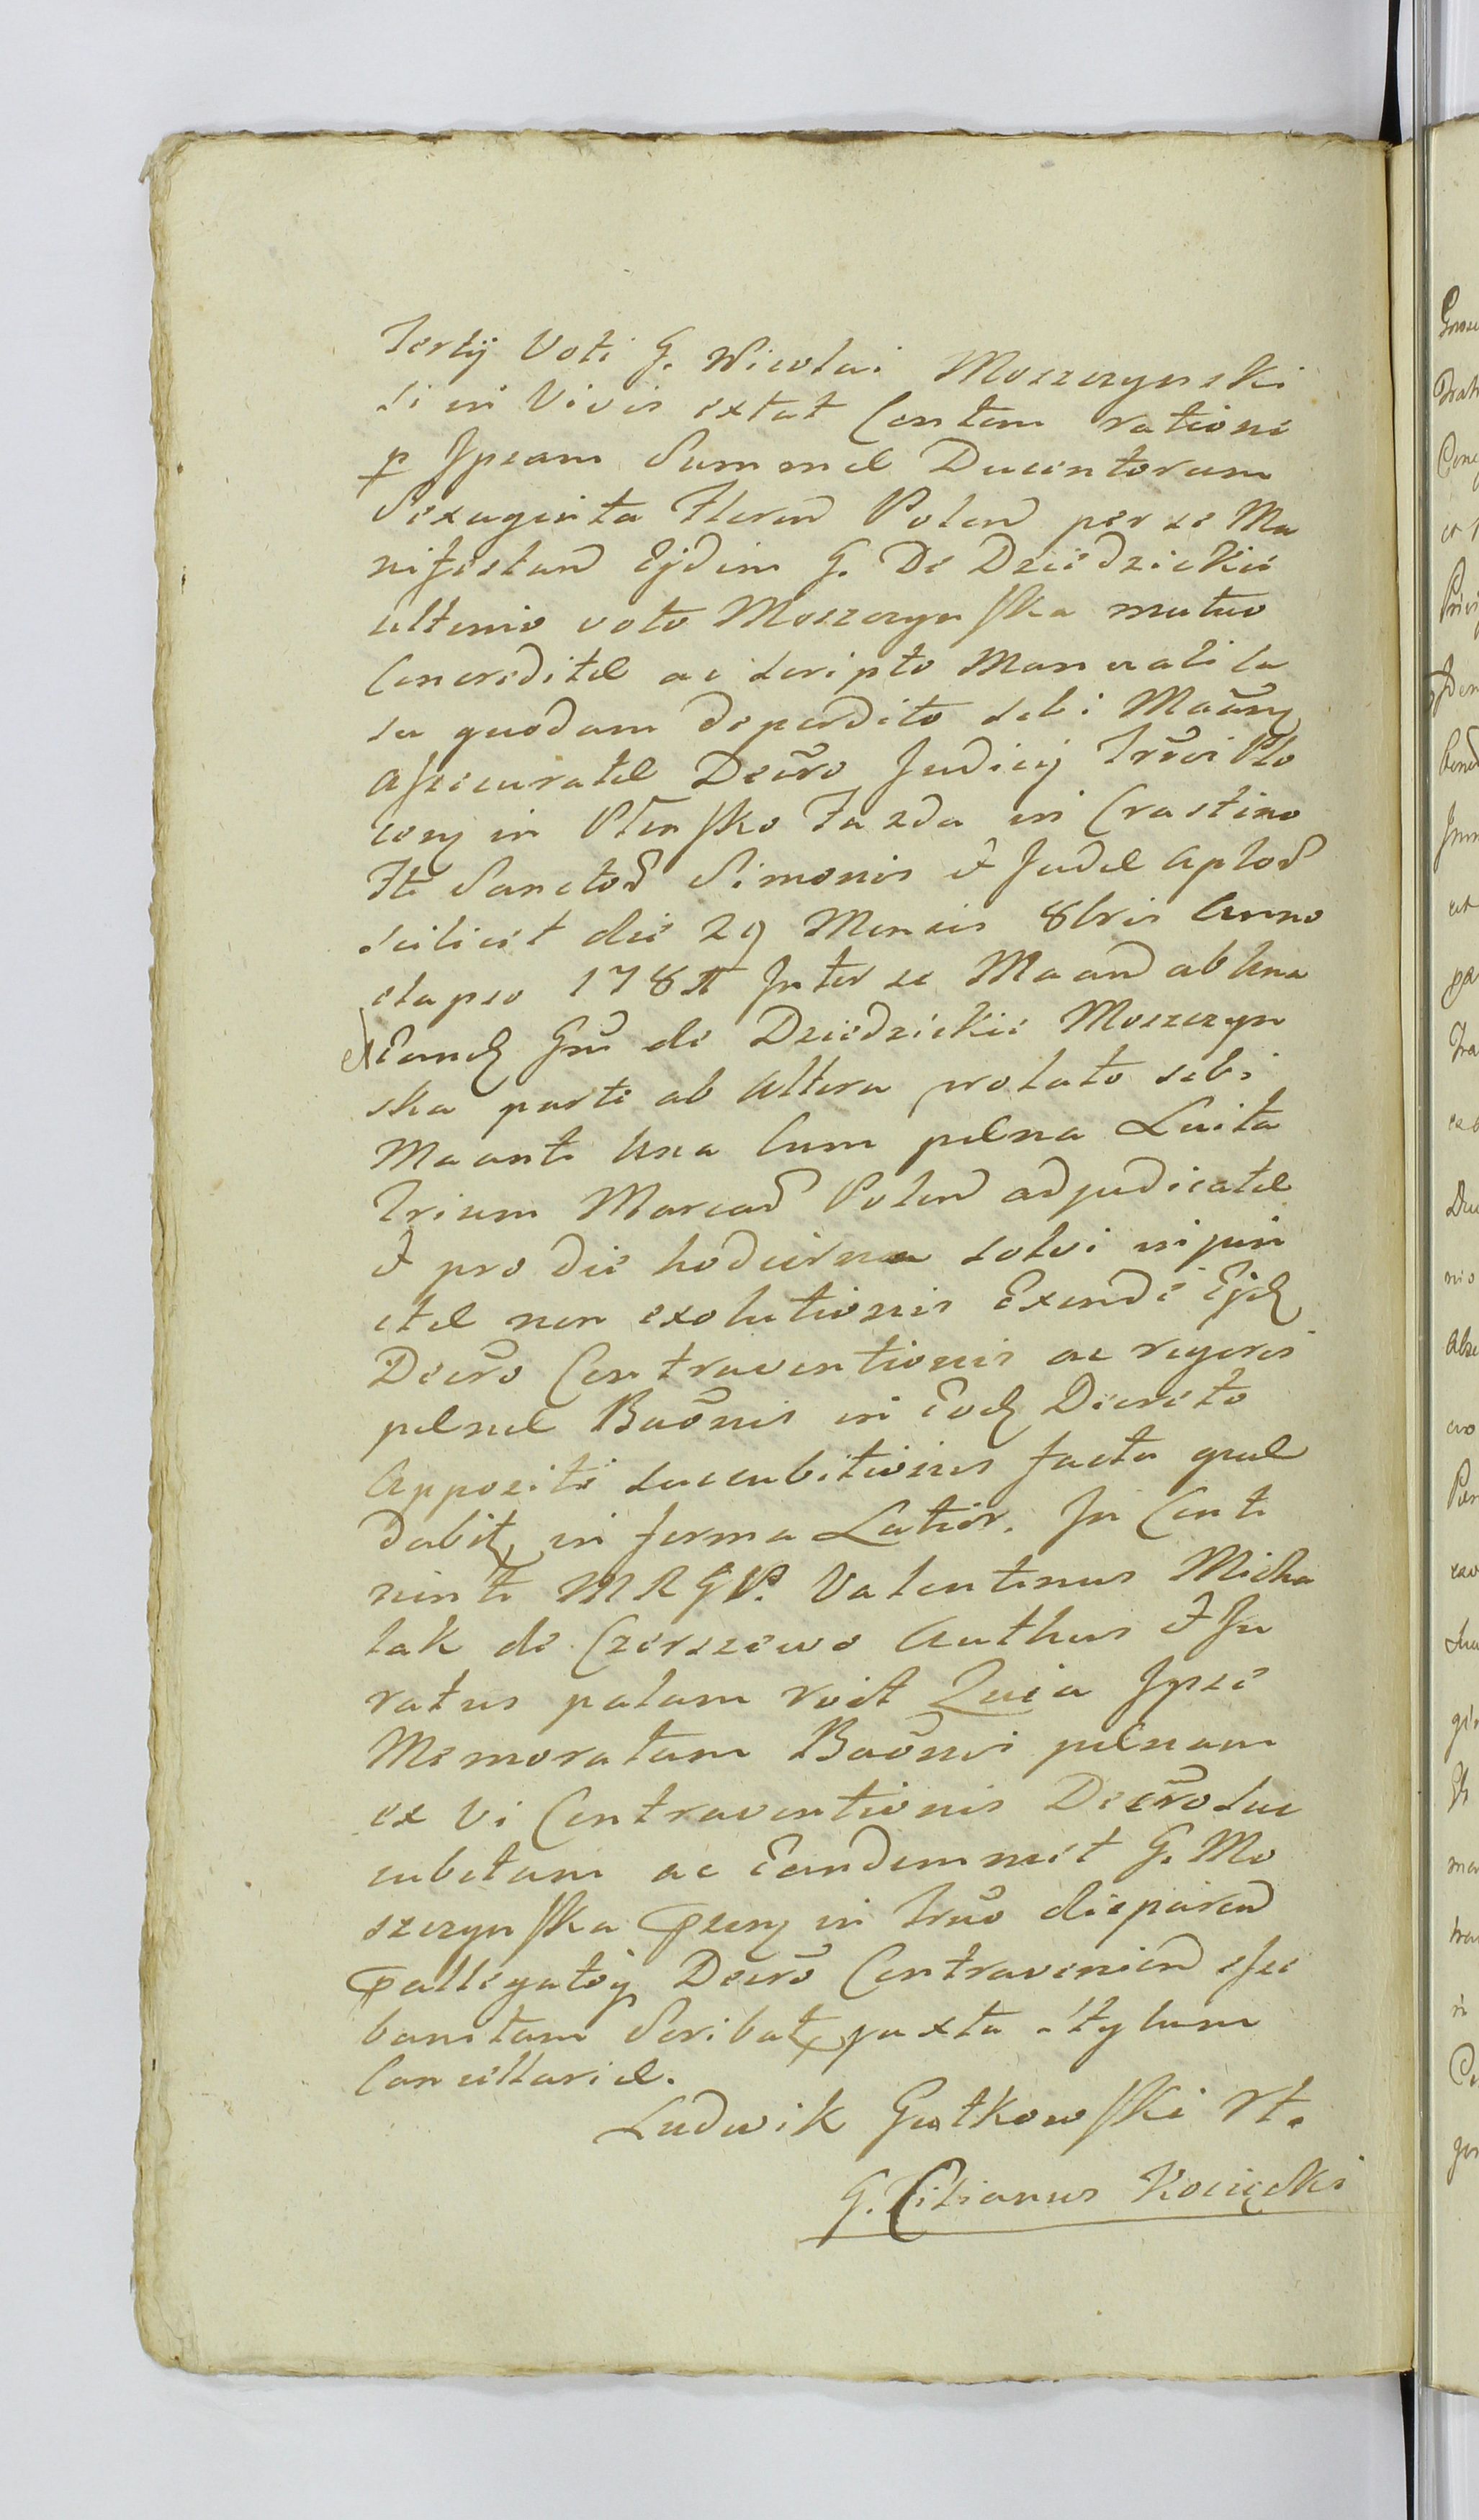 Tertij Voti G. Nicolai Moszczynski
si in Vivis extat Contum ratione
p Ipsam Summæ Ducentorum
Sexaginta Floren Polon per se Ma
nifestand Ejdem G. De Dziedzickie
ultimo voto Moszczynska mutuo
Concreditæ ac scripto Manuali ca
su quodam deperdito sibi
assecuratæ Decro Judicij Plo
in Plonsko Fazda in Crastino
Fti Sanctor Simonis et Judæ Aplor
scilicet die 29 Mensis 8bris Anno
elapso 178 Inter se Maand ab Una
et Eand Gm de Dziedzickie Moszczyn
ska parte ab Altera prolato sibi
Maanti Una Cum pæna Luita
Trium Marcar Polon adjudicatæ
et pro die hodierna solvi injun
ctæ non exolutionis Exinde Ejd
Decro Contraventionis ac rigoris
pænæ Baonis in Eod Decreto
Appositi succubitionis facta quæ
dabit in forma Latior. In Conti
nenti MRGP. Valentinus Micha
lak de Czerszewo Authus et Ju
ratus palam rcit Quia Ipse
Memoratam Baonis pænam
ex Vi Contraventionis Decro suc
cubitam ac Eandemmet G. Mo
szczynska in trno disparen
Decro Contravenien esse
banitam Scribat juxta stylum
Cancellariæ.
Ludwik Gutkowski
G. Cilianus Kocięcki